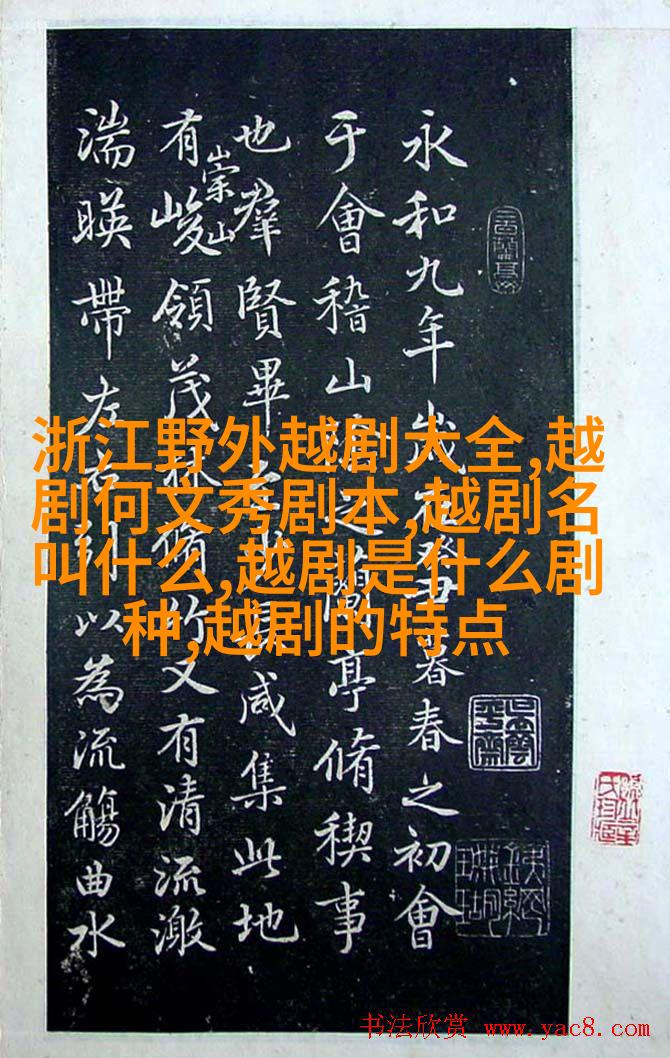 永和九年歲在癸丑暮春之初會
于會稽山陰之蘭亭脩稧事
也羣賢畢至少長咸集此地
有崇山峻領茂林脩竹又有清流激
湍暎帶左右引以為流觴曲水
浙江野外越剧大全,越
剧何文秀剧本,越剧名
叫什么,越剧是什么剧
种,越剧的特点
书法欣赏 www.yac8.com